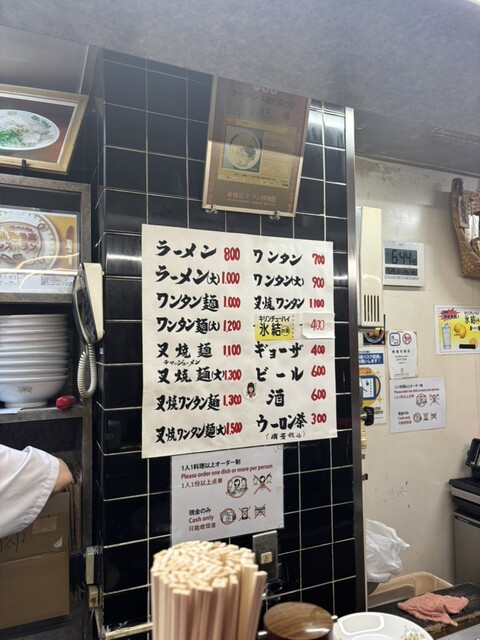 ラーメン 800
ラーメン(大) 1,000
ワンタン麺 1,000
ワンタン麺(大) 1,200
叉焼麺 1,100
チャーシューメン
叉焼麺(大) 1,300
叉焼ワンタン麺 1,300
叉焼ワンタン麺(大) 1,500
ワンタン 700
ワンタン(大) 900
叉焼ワンタン 1,100
キリンチューハイ
氷結 400
ギョーザ 400
ビール 600
酒 600
ウーロン茶 300
1人1料理以上オーダー制
Please order one dish or more per person
1人1份以上点单
現金のみ
Cash only
只能收現金
644
氷結